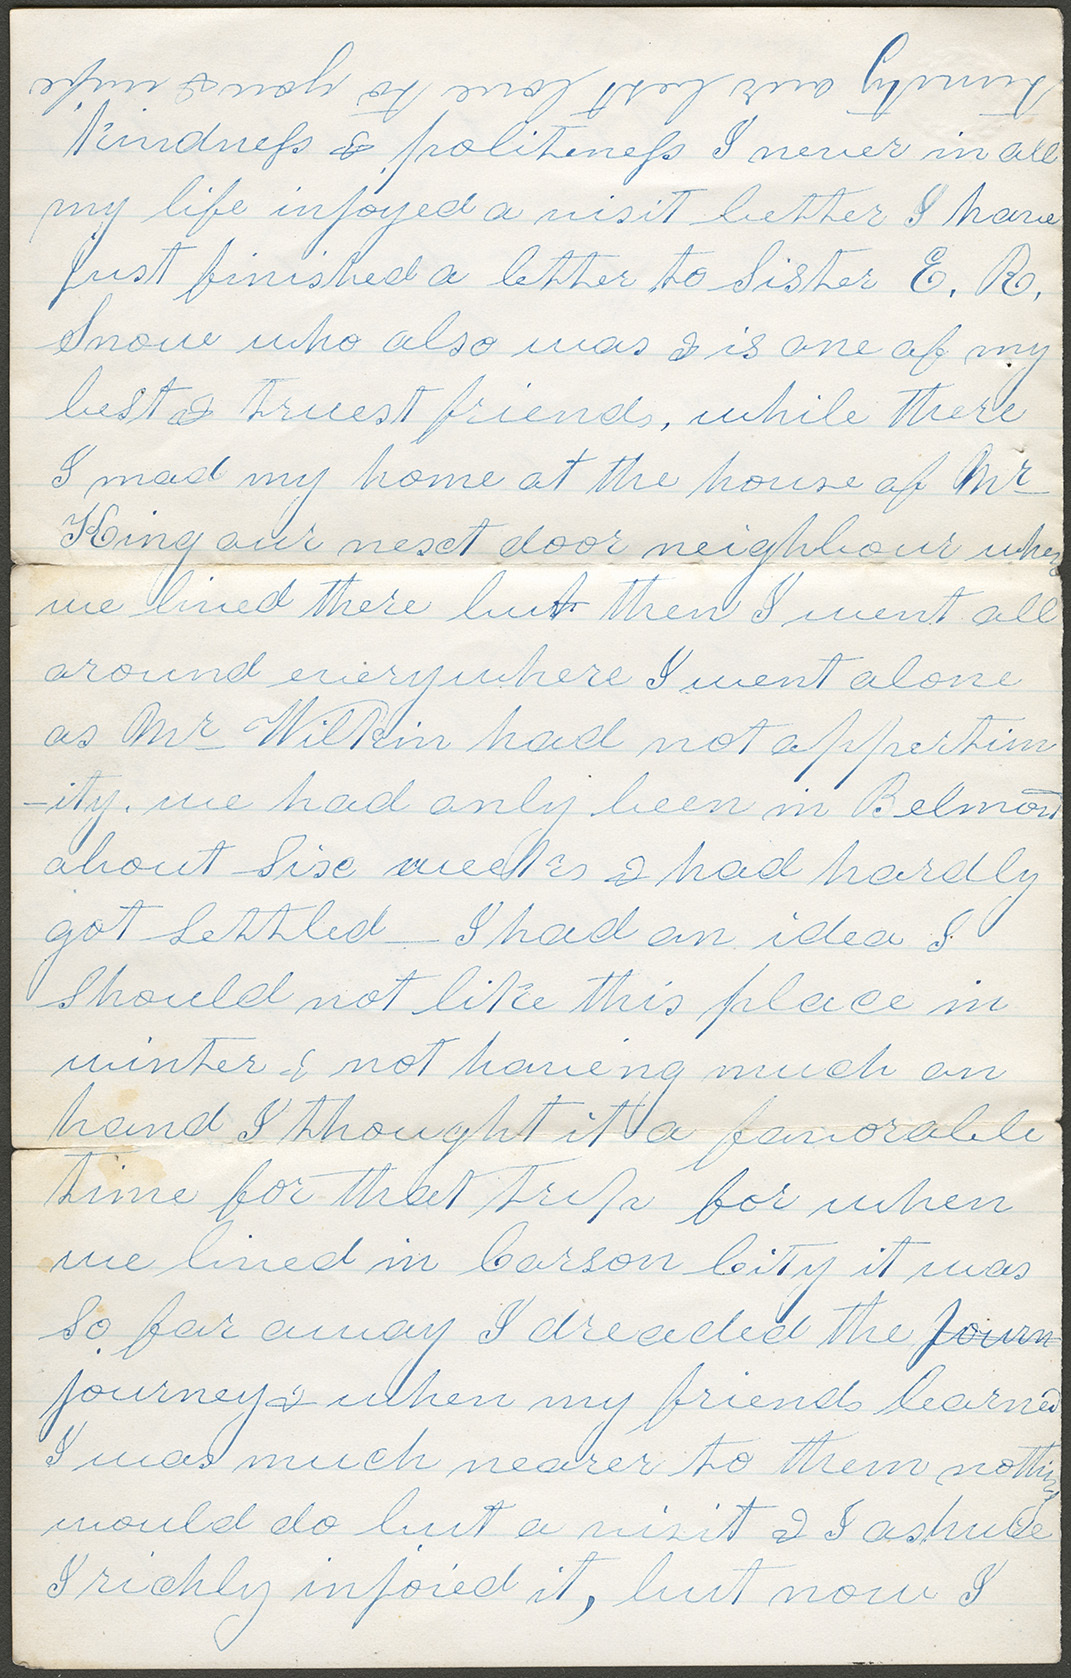 family our best love to you & wife
kindness & politeness I never in all
my life injoyed a visit better I have
just finished a letter to Sister E. R.
Snow who also was & is one of my
best & truest friends, while there
I mad my home at the house of Mr
King our next door neighbour when
we lived there but then I went all
around everywhere I went alone
as Mr Wilkin had not oppertun
-ity. we had only been in Belmont
about Six weeks & had hardly
got Settled — I had an idea I
should not like this place in
winter & not haveing much on
hand I thought it a favorable
time for that trip for when
we lived in Carson City it was
So far away I dreaded the Journ
journey & when my friends learned
I was much nearer to them nothing
would do but a visit & I ashure
I richly injoied it, but now I